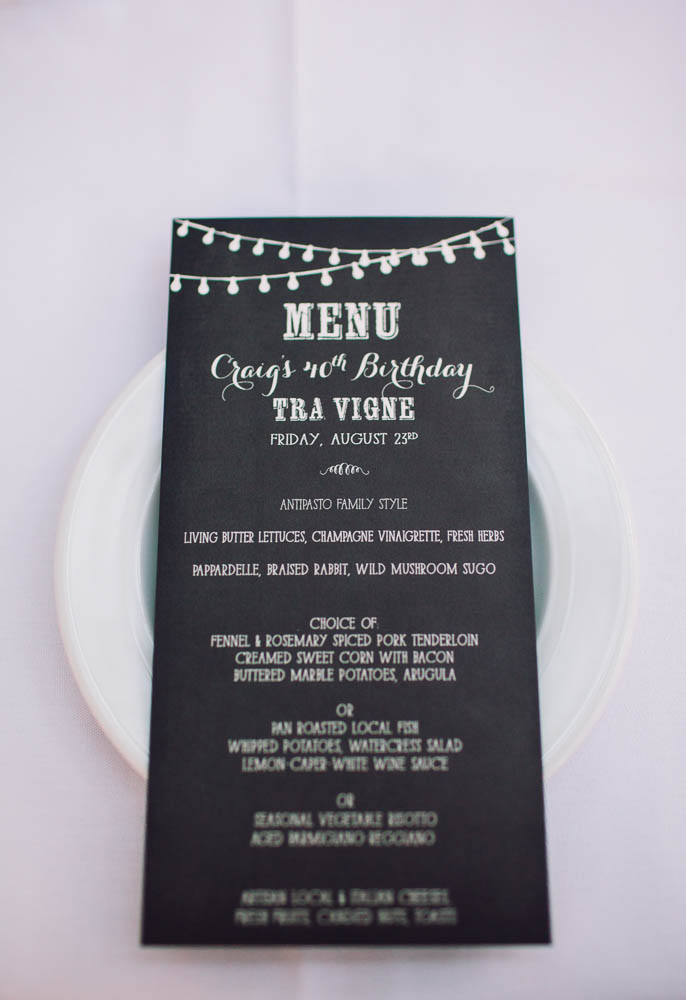 MENU
Craig's 40th Birthday
TRA VIGNE
FRIDAY, AUGUST 23RD
ANTIPASTO FAMILY STYLE
LIVING BUTTER LETTUCES, CHAMPAGNE VINAIGRETTE, FRESH HERBS
PAPPARDELLE, BRAISED RABBIT, WILD MUSHROOM SUGO
CHOICE OF:
FENNEL & ROSEMARY SPICED PORK TENDERLOIN
CREAMED SWEET CORN WITH BACON
BUTTERED MARBLE POTATOES, ARUGULA
OR
PAN ROASTED LOCAL FISH
WHIPPED POTATOES, WATERCRESS SALAD
LEMON-CAPER-WHITE WINE SAUCE
OR
SEASONAL VEGETABLE RISOTTO
AGED PARMIGIANO REGGIANO
ARTISAN LOCAL & ITALIAN CHEESES,
FRESH FRUITS, CANDIED NUTS, TOASTS